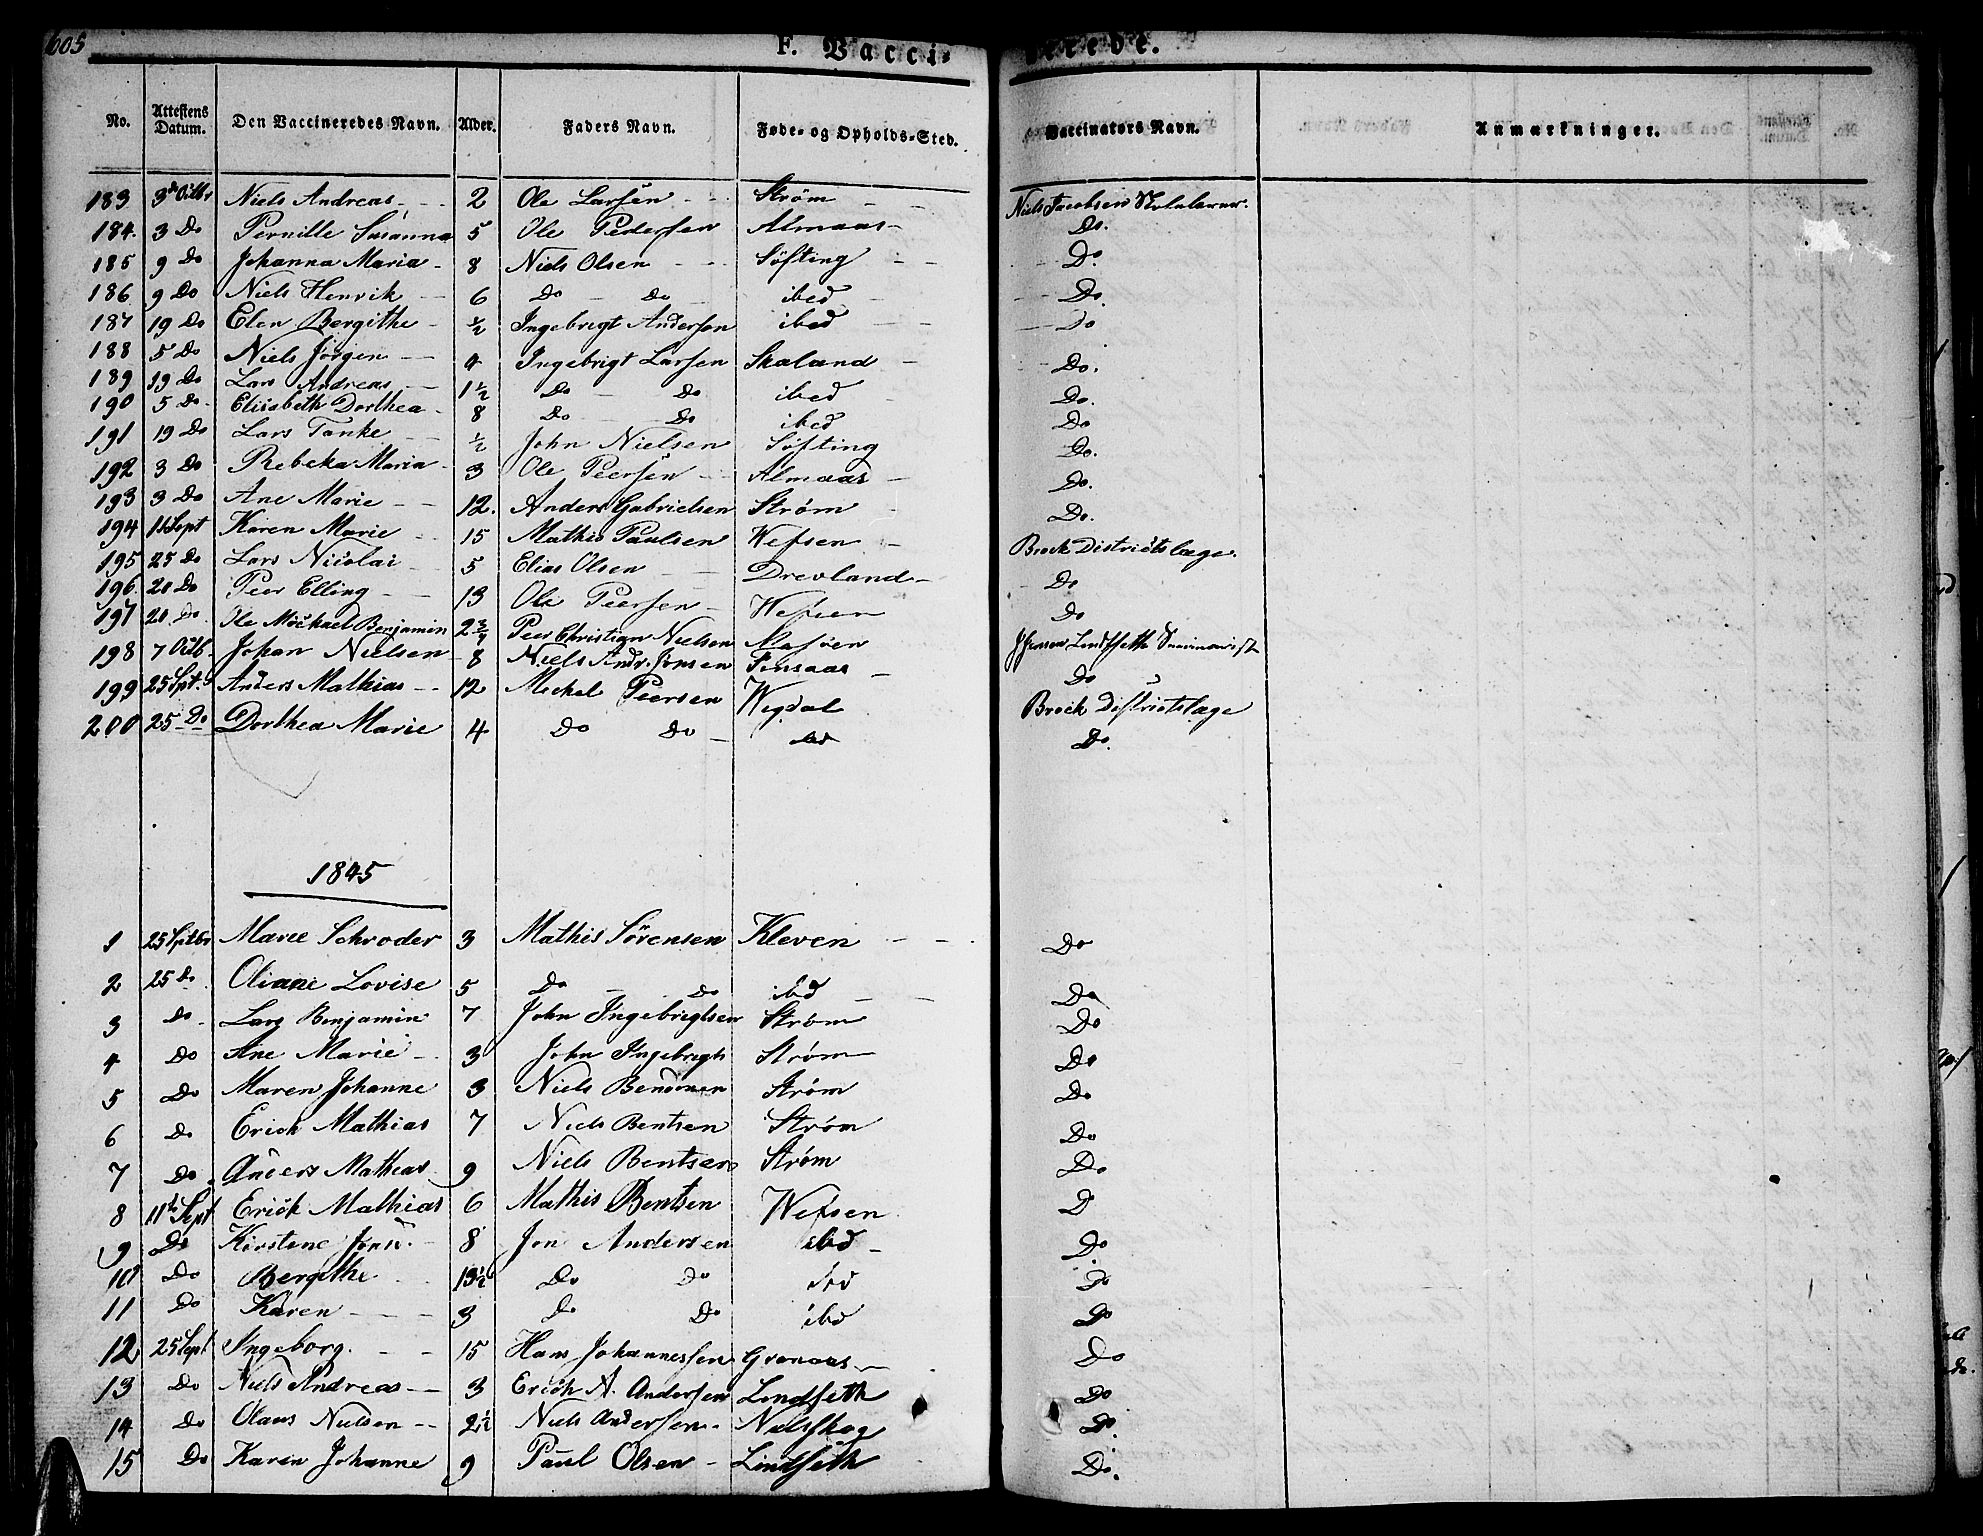 605
F. Vacci- nerede.
No. Attestens Datum. Den Vaccineredes Navn. Alder. Faders Navn. Føde- og Opholds-Sted. Vaccinators Navn. Anmærkninger.
183 3de Octbr Niels Andreas 2 Ole Larsen Strøm Niels Jacobsen Skolelærer
184. 3 Do Pernille Susanna 5 Ole Pedersen Almaas Do.
185 9 Do Johanna Maria 8 Niels Olsen Søfting Do.
186 9 Do Niels Henrik 6 Do Do ibed Do.
187 19 Do Elen Bergithe ½ Ingebrigt Andersen ibed Do
188 5 Do Niels Jörgen 4 Ingebrigt Larsen Skaland Do.
189 19 Do Lars Andreas 1½ Do Do ibed Do.
190 5 Do Elisabeth Dorthea 8 Do Do ibed Do
191 19 Do Lars Tanke ½ John Nielsen Søfting Do.
192 3 Do Rebeka Maria 3 Ole Peersen Almaas Do.
193 3 Do Ane Marie 12. Anders Gabrielsen Strøm Do.
194 11 Sept Karen Marie 15 Mathis Paulsen Wefsen Brock Districtslæge.
195 25 Do Lars Nicolai 5 Elias Olsen Drevland Do
196. 20 Do Peer Elling 13 Ole Peersen Wefsen Do
197 20 Do Ole Mickael Benjamin 2¾ Peer Christian Nielsen J Jensen Lindseth
198 7 Octb. Johan Nielsen 8 Niels Andr. Jonsen Do
199 25 Sept. Anders Mathias 12 Mickel Peersen Wegdal Brock Districtslæge
200 25 Do Dorthea Marie 4 Do Do ibd Do.
1845
1 25 Septbr Maree Schroder 3 Mathis Sörensen Kleven Do
2 25 Do Oliane Lovise 5 Do Do ibd Do
3 do Lars Benjamin 7 John Ingebregtsen Strøm Do
4 Do Ane Marie 3 John Ingebregts Strøm Do
5 Do Maren Johanne 3 Niels Strøm Do
6 Do Erich Mathias 7 Niels Bentsen Strøm Do
7 Do Anders Mathias 9 Niels Bentsen Strøm Do
8 11te Sept Erick Mathias 6 Mathis Bentsen Wefsen D
9 Do Kirstene 8 Jon Andersen ibd Do
10 Do Bergethe 13½ Do Do ibd Do
11 Do Karen 3 Do Do ibd Do
12 25 Sept Ingeborg. 15 Hans Johannessen Granaas Do
13 Do Niels Andreas 3 Erick A. Andersen Lindseth Do
14 do Olaus Nielsen 2½ Niels Andersen Nielsskog Do.
15 Do Karen Johanne 9 Paul Olsen Lindseth Do.